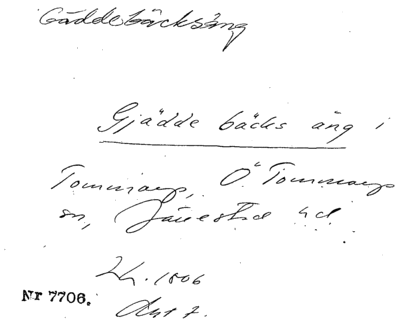 Gäddebäcksäng
Gjädde bäcks äng i
Tommarp, Ö. Tommarps
sn, Järrestad hd.
Lh. 1806
Nr 7706.
Akt 7.